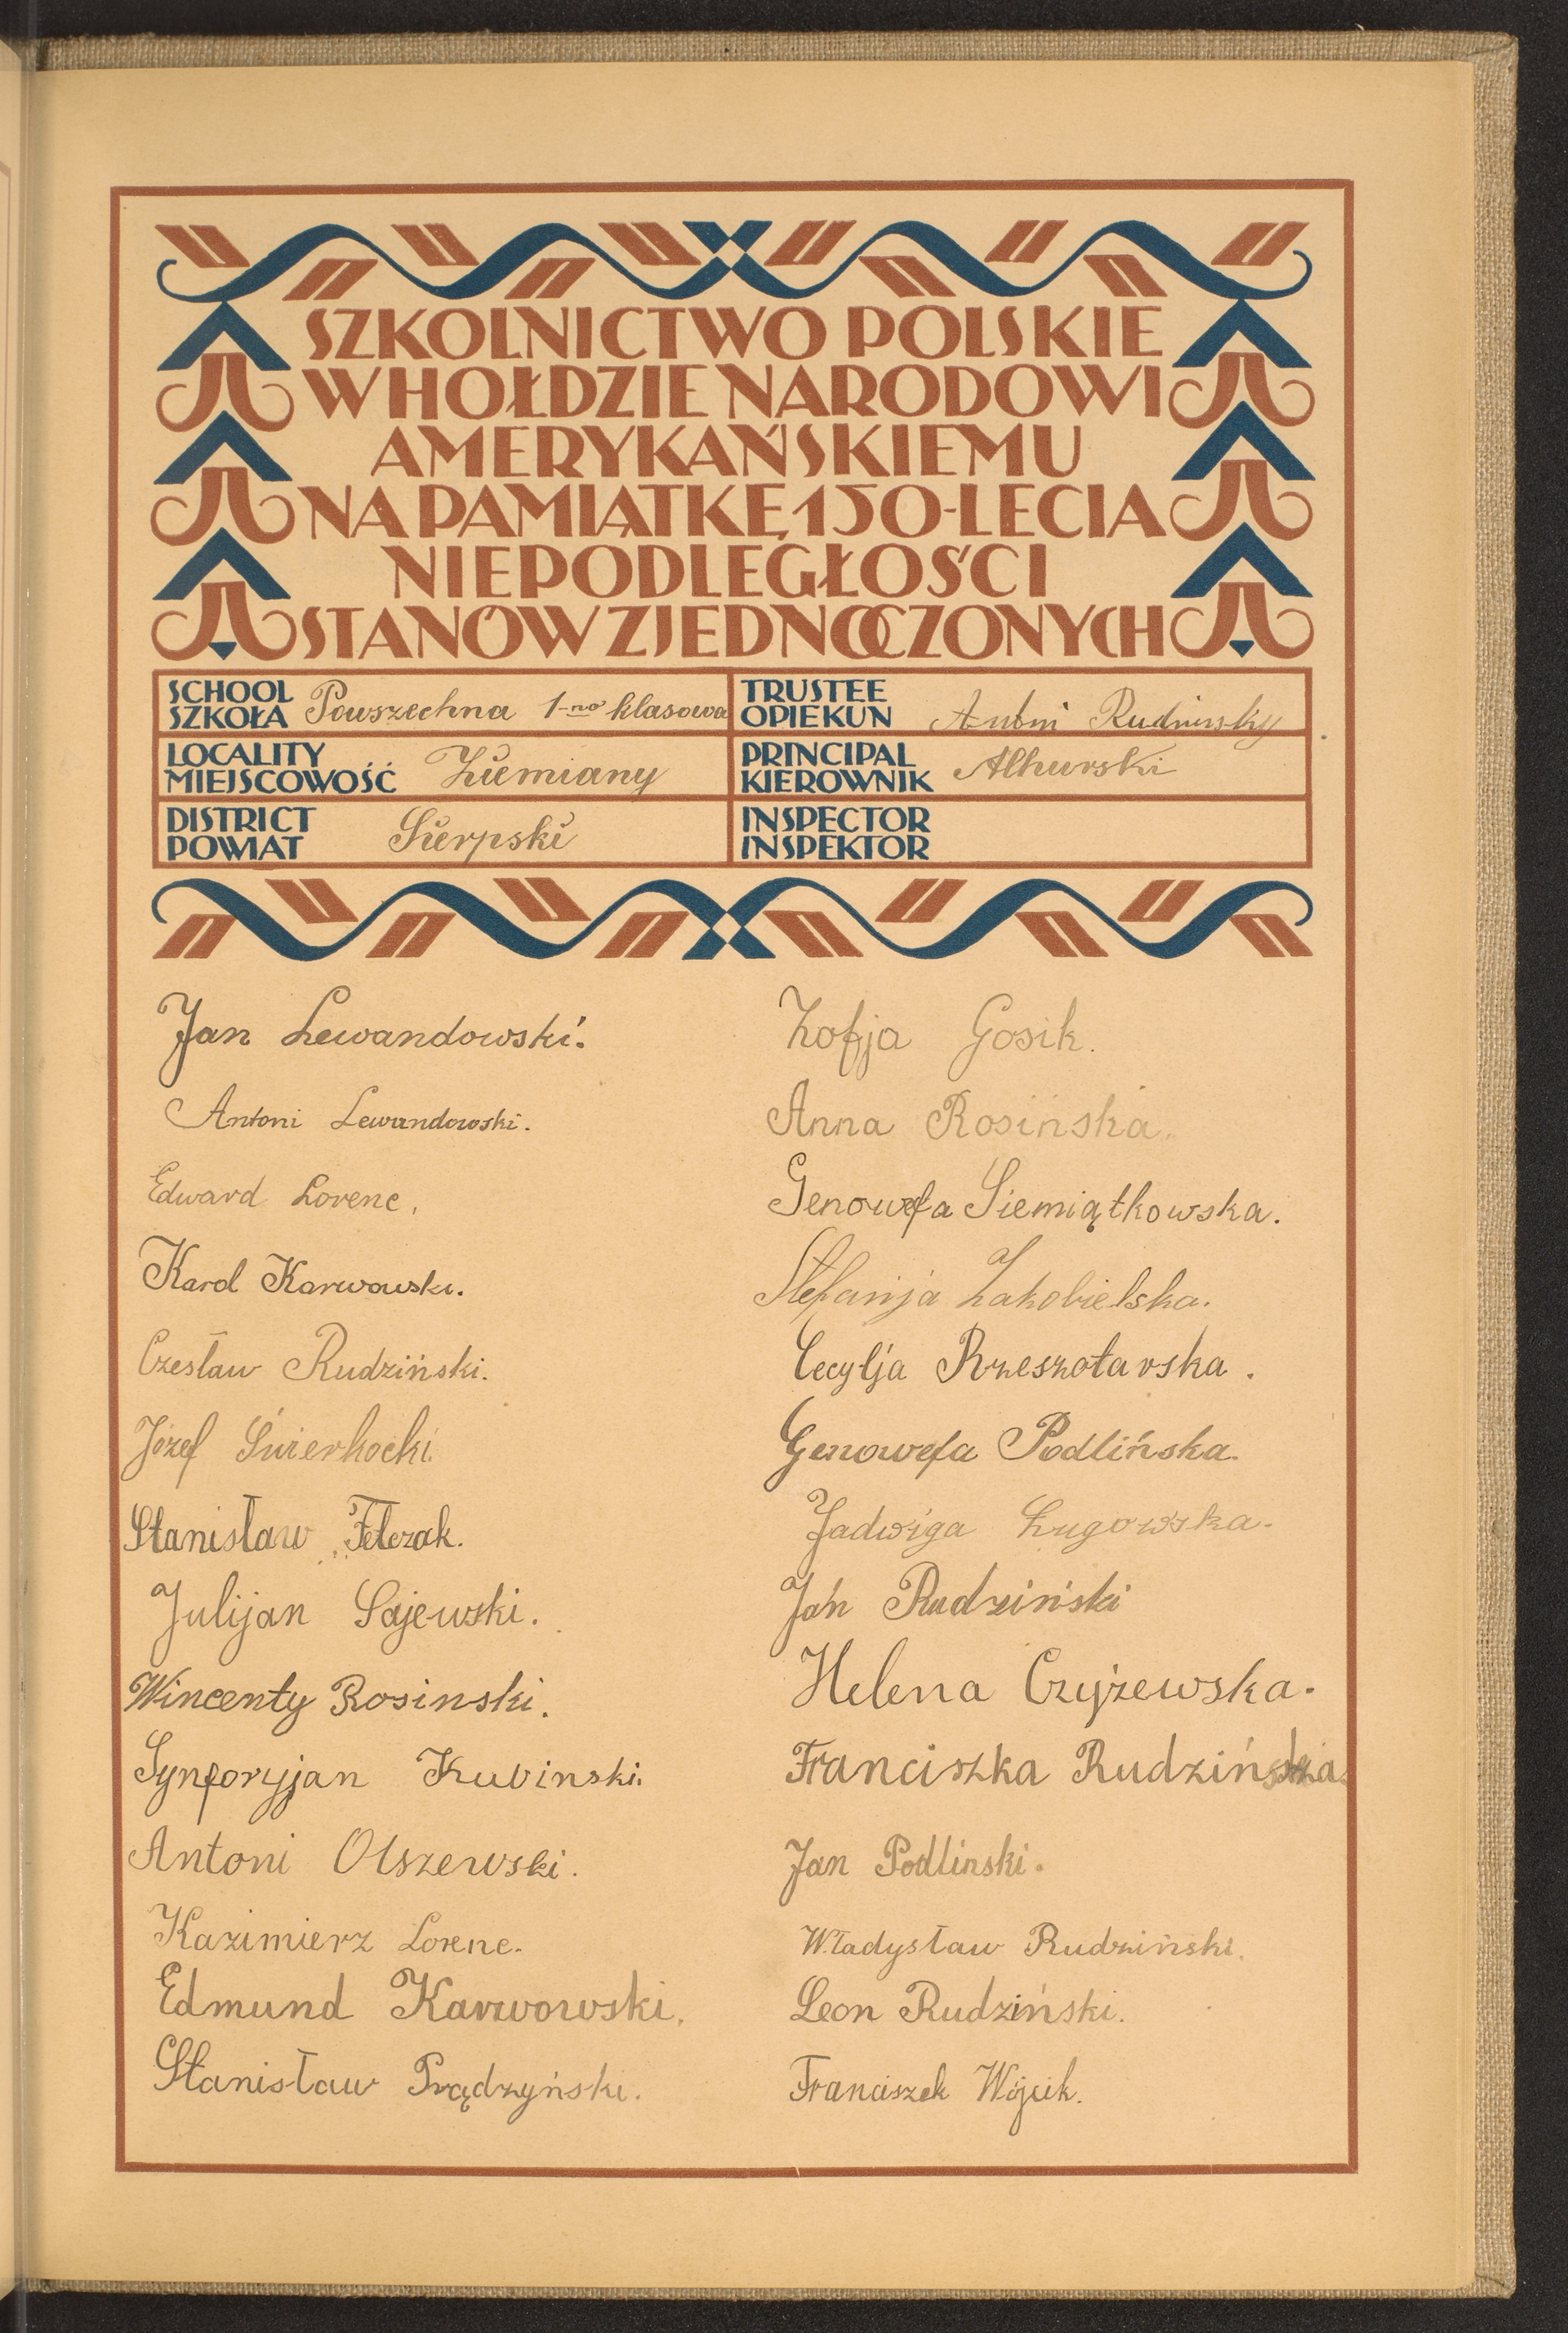 SZKOLNICTWO POLSKIE
W HOŁDZIE NARODOWI
AMERYKAŃSKIEMU
NA PAMIĄTKĘ 150-LECIA
NIEPODLEGŁOŚCI
STANÓW ZJEDNOCZONYCH
SCHOOL
SZKOŁA Powszechna 1-no klasowa
LOCALITY
MIEJSCOWOŚĆ Ziemiany
DISTRICT
POWIAT Sierpski
TRUSTEE
OPIEKUN Rudzinsky
PRINCIPAL
KIEROWNIK
INSPECTOR
INSPEKTOR
Jan Lewandowski.
Antoni Lewandowski.
Edward Lorenc.
Karol Karwowski.
Czesław Rudziński.
Józef Świerkocki.
Stanisław Felczak.
Julijan Gajewski.
Wincenty Rosinski.
Synforyjan Kubinski.
Antoni Olszewski.
Kazimierz Lorenc.
Edmund Karwowski.
Stanisław Prądzyński.
Zofja Gosik.
Anna Rosińska.
Genowefa Siemiątkowska.
Stefanja Zakobielska.
Cecylja Rzeszotarska.
Genowefa Podlińska.
Jadwiga Ługowska.
Jan Rudziński
Helena Czyżewska.
Franciszka Rudzińska.
Jan Podlinski.
Władysław Rudziński.
Leon Rudziński.
Franciszek Wójcik.